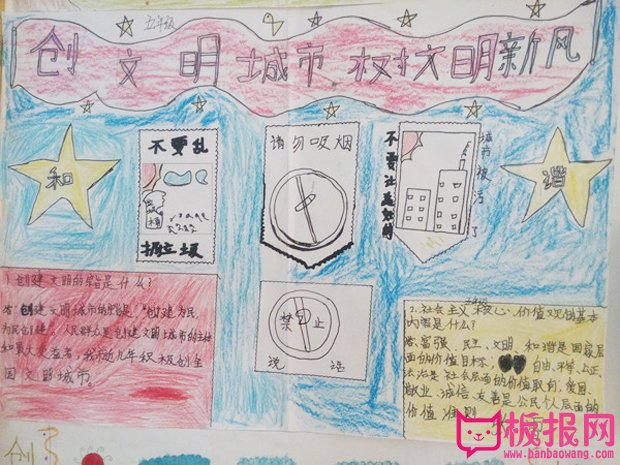 五年级
创文明城市 树文明新风
和
不要乱
请勿吸烟
不要让美好的
城市被污了
谐
1.创建文明的宗旨是什么?
答:创建文明城市的宗旨是:"创建为民,
为民创建",人民群众是创建文明城市的主体
和最大受益者,我市近几年积极创全
国文明城市。
禁止
说话
2.社会主义核心价值观的基本
内容是什么?
答:富强、民主、文明、和谐是国家层
面的价值目标,自由、平等、公正、
法治是社会层面的价值取向,爱国、
敬业、诚信、友善是公民个人层面的
价值准则
创
板报网
www.banbaowang.com